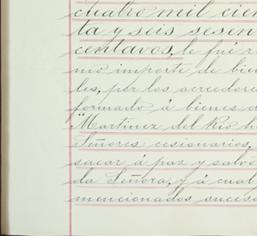 cuatro mil cien
ta y seis sesen
centavos, le fué r
mo importe de bie
les, por los acreedores
formado á bienes d
"Martinez del Rio h
Señores cesionarios,
sacar á paz y salvo
da Señora, y á cual
mencionados suceso